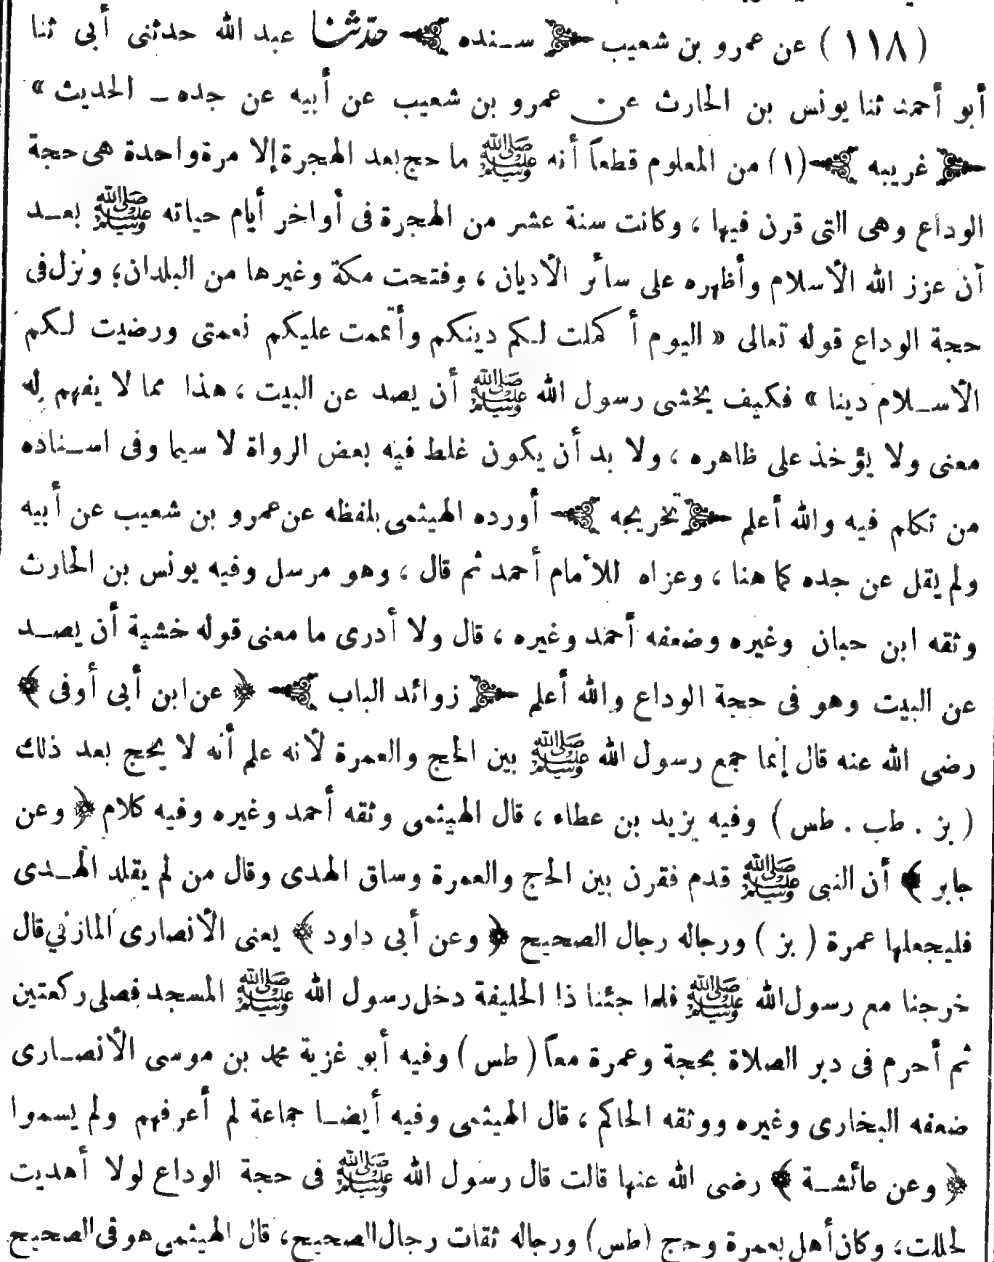 (١١٨) عن عمرو بن شعيب ﴿ سنده ﴾ حدّثنا عبد الله حدثنى أبى ثنا
أبو أحمد ثنا يونس بن الحارث عن عمرو بن شعيب عن أبيه عن جده ــ الحديث »
﴿ غريبه ﴾ (١) من المعلوم قطعاً أنه ﷺ ما حج بعد الهجرة إلا مرة واحدة هى حجة
الوداع وهى التى قرن فيها ، وكانت سنة عشر من الهجرة فى أواخر أيام حياته ﷺ بعد
أن عزز الله الأسلام وأظهره على سائر الأديان ، وفتحت مكة وغيرها من البلدان؛ ونزل فى
حجة الوداع قوله تعالى « اليوم أكملت لكم دينكم وأتممت عليكم نعمتى ورضيت لكم
الأسلام دينا » فكيف يخشى رسول الله ﷺ أن يصد عن البيت ، هذا مما لا يفهم له
معنى ولا يؤخذ على ظاهره ، ولا بد أن يكون غلط فيه بعض الرواة لا سيما وفى اسناده
من تكلم فيه والله أعلم ﴿ تخريجه ﴾ أورده الهيثمى بلفظه عن عمرو بن شعيب عن أبيه
ولم يقل عن جده كما هنا ، وعزاه للأمام أحمد ثم قال ، وهو مرسل وفيه يونس بن الحارث
وثقه ابن حبان وغيره وضعفه أحمد وغيره ، قال ولا أدرى ما معنى قوله خشية أن يصد
عن البيت وهو فى حجة الوداع والله أعلم ﴿ زوائد الباب ﴾ ﴿ عن ابن أبى أوفى ﴾
رضى الله عنه قال إنما جمع رسول الله ﷺ بين الحج والعمرة لأنه علم أنه لا يحج بعد ذلك
( بز . طب . طس ) وفيه يزيد بن عطاء ، قال الهيثمى وثقه أحمد وغيره وفيه كلام ﴿ وعن
جابر ﴾ أن النبى ﷺ قدم فقرن بين الحج والعمرة وساق الهدى وقال من لم يقلد الهدى
فليجعلها عمرة ( بز ) ورجاله رجال الصحيح ﴿ وعن أبى داود ﴾ يعنى الأنصارى المازني قال
خرجنا مع رسول الله ﷺ فلما جئنا ذا الحليفة دخل رسول الله ﷺ المسجد فصلى ركعتين
ثم أحرم فى دبر الصلاة بحجة وعمرة معاً ( طس ) وفيه أبو غزية محمد بن موسى الأنصارى
ضعفه البخارى وغيره ووثقه الحاكم ، قال الهيثمى وفيه أيضا جماعة لم أعرفهم ولم يسموا
﴿ وعن عائشة ﴾ رضى الله عنها قالت قال رسول الله ﷺ فى حجة الوداع لولا أهديت
لحللت، وكان أهل بعمرة وحج (طس) ورجاله ثقات رجال الصحيح، قال الهيثمى هو فى الصحيح